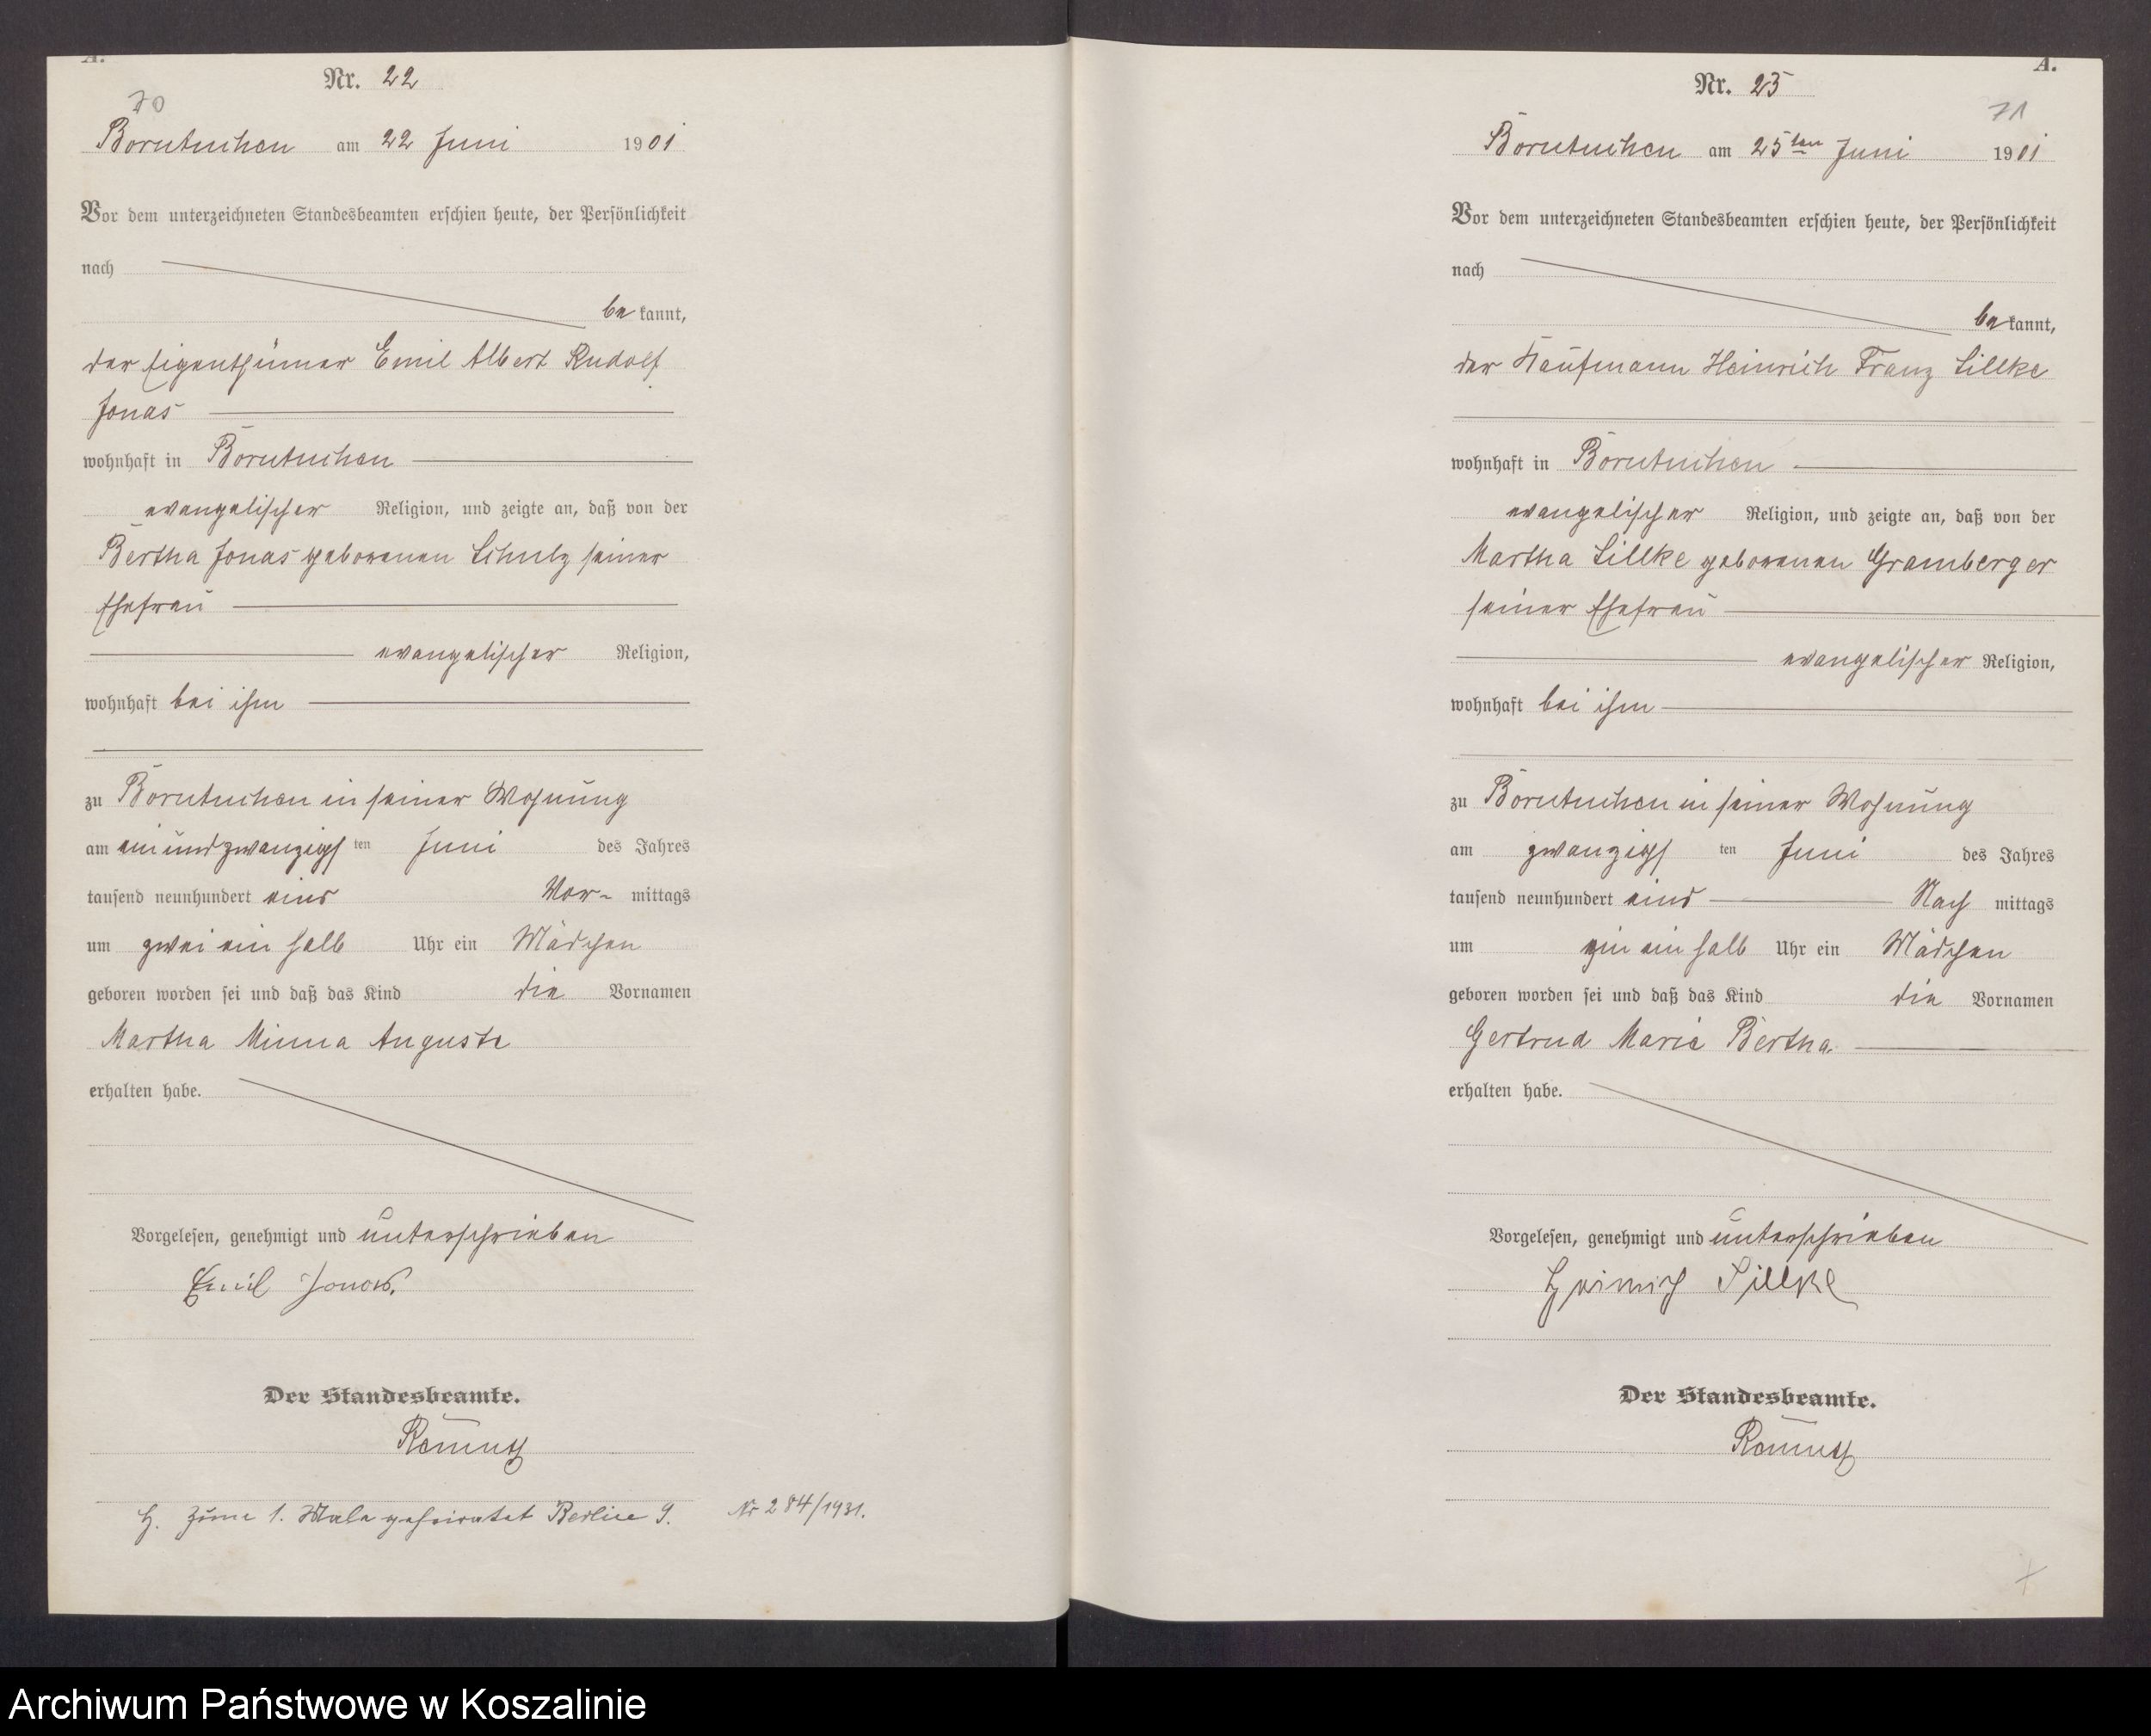 A.
Nr. 22
70
Borntuchen am 22 Juni 1901
Vor dem unterzeichneten Standesbeamten erschien heute, der Persönlichkeit
nach
bekannt,
der Eigenthümer Emil Albert Rudolf
Jonas
wohnhaft in Borntuchen
evangelischer Religion, und zeigte an, daß von der
Bertha Jonas geborenen Schulz seiner
Ehefrau
evangelischer Religion,
wohnhaft bei ihm
zu Borntuchen in seiner Wohnung
am ein und zwanzigsten Juni des Jahres
tausend neunhundert eins Vor- mittags
um zwei ein halb Uhr ein Mädchen
geboren worden sei und daß das Kind die Vornamen
Martha Minna Auguste
erhalten habe.
Vorgelesen, genehmigt und unterschrieben
Emil Jonas.
Der Standesbeamte.
H. Zum 1. Male geheiratet Berlin 9. Nr 284/1931.
A.
Nr. 23
71
Borntuchen am 25ten Juni 1901
Vor dem unterzeichneten Standesbeamten erschien heute, der Persönlichkeit
nach
bekannt,
der Kaufmann Heinrich Franz Lillke
wohnhaft in Borntuchen
evangelischer Religion, und zeigte an, daß von der
Martha Lillke geborenen Gramberger
seiner Ehefrau
evangelischer Religion,
wohnhaft bei ihm
zu Borntuchen in seiner Wohnung
am zwanzigsten Juni des Jahres
tausend neunhundert eins Nach mittags
um ein ein halb Uhr ein Mädchen
geboren worden sei und daß das Kind die Vornamen
Gertrud Marie Bertha
erhalten habe.
Vorgelesen, genehmigt und unterschrieben
Heinrich Lillke
Der Standesbeamte.
Archiwum Państwowe w Koszalinie